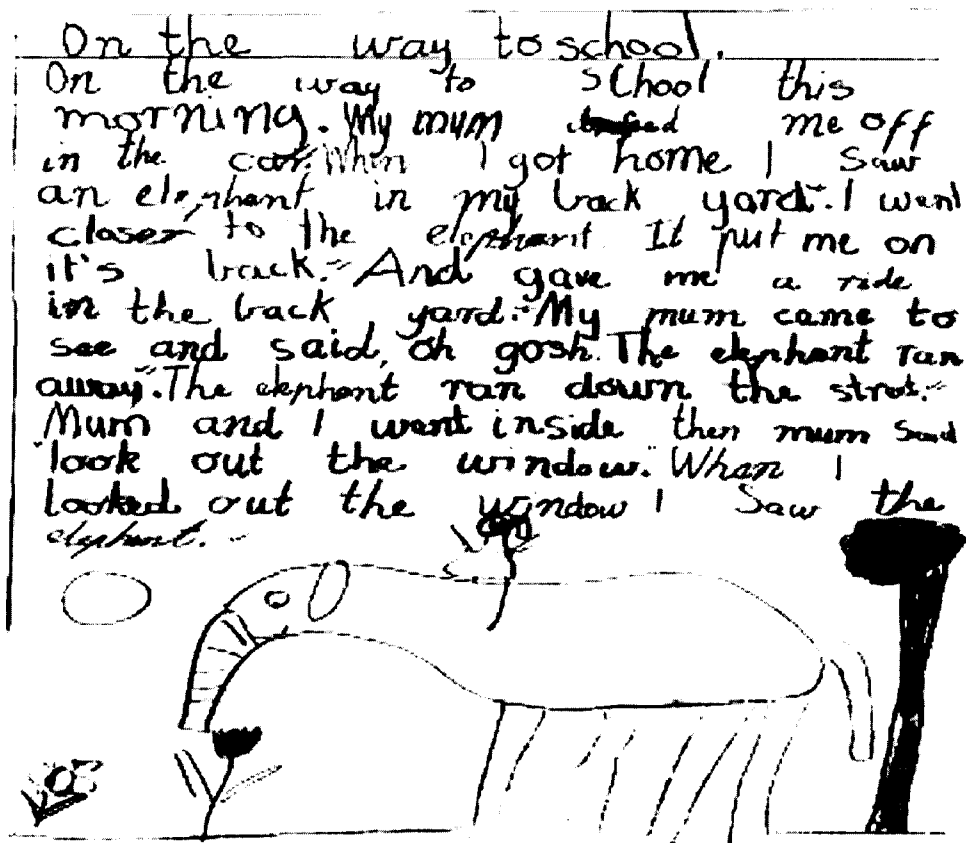 On the way to school.
On the way to school this
morning. My mum me off
in the car. When I got home I saw
an elephant in my back yard. I went
closer to the elephant. It put me on
it's back. And gave me a ride
in the back yard. My mum came to
see and said, oh gosh. The elephant ran
away. The elephant ran down the stret.
Mum and I went inside then mum said
"look out the window." When I
looked out the window I saw the
elephant.